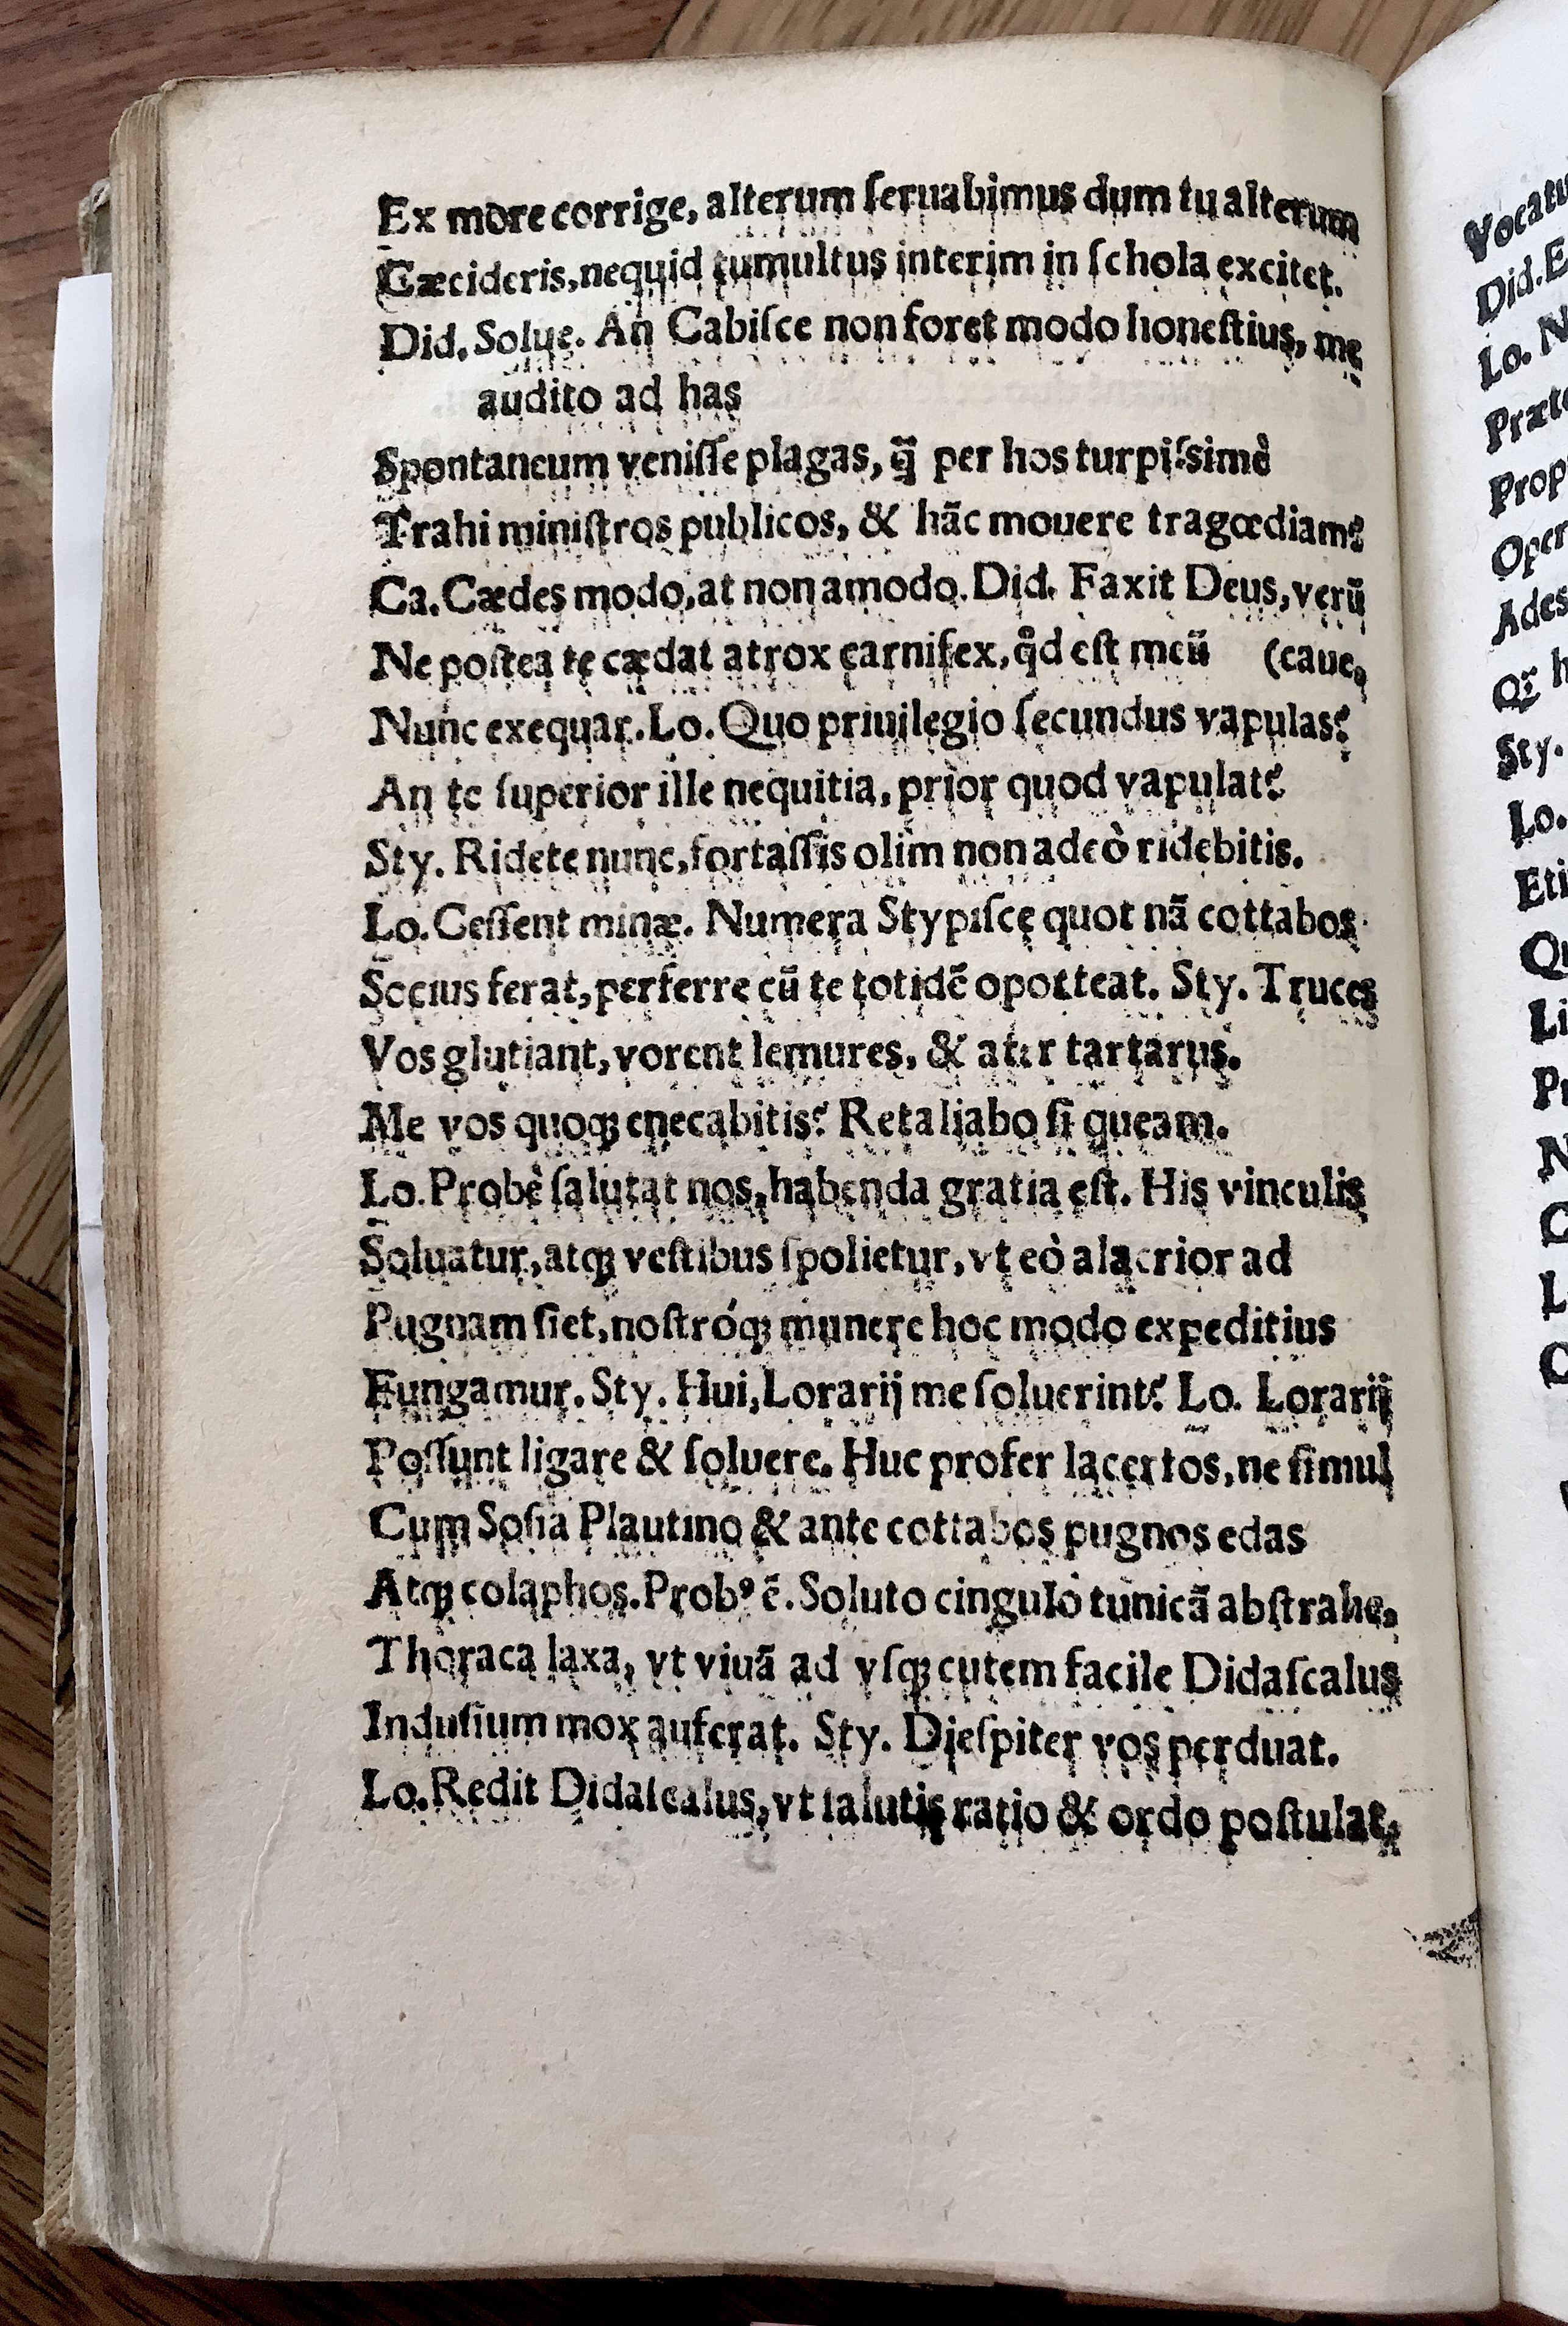 Ex more corrige, alterum ſeruabimus dum tu alterum
Cæcideris, nequid tumultus interim in ſchola excitet.
Did. Solue. An Cabiſce non foret modo honeſtius, me
audito ad has
Spontaneum veniſſe plagas, q̃ per hos turpiſsimè
Trahi miniſtros publicos, & hãc mouere tragœdiam?
Ca. Cædes modo, at non amodo. Did. Faxit Deus, verũ
Ne poſtea te cædat atrox carnifex, qd̓ eſt meũ (caue,
Nunc exequar. Lo. Quo priuilegio ſecundus vapulas?
An te ſuperior ille nequitia, prior quod vapulat?
Sty. Ridete nunc, fortaſſis olim non adeò ridebitis.
Lo. Ceſſent minæ. Numera Stypiſce quot nã cottabos
Socius ferat, perferre cũ te totidẽ opotteat. Sty. Truces
Vos glutiant, vorent lemures, & ater tartarus.
Me vos quoqꝫ enecabitis? Retaliabo ſi queam.
Lo. Probè ſalutat nos, habenda gratia eſt. His vinculis
Soluatur, atqꝫ veſtibus ſpolietur, vt eò alacrior ad
Pugnam ſiet, noſtróqꝫ munere hoc modo expeditius
Fungamur. Sty. Hui, Lorarij me ſoluerint? Lo. Lorarij
Poſſunt ligare & ſoluere. Huc profer lacertos, ne ſimul
Cum Soſia Plautino & ante cottabos pugnos edas
Atqꝫ colaphos. Probꝰ ẽ. Soluto cingulo tunicã abſtrahe,
Thoraca laxa, vt viuã ad vſqꝫ cutem facile Didaſcalus
Induſium mox auferat. Sty. Dieſpiter vos perduat.
Lo. Redit Didaſcalus, vt ſalutis ratio & ordo poſtulat,
Vocatu
Did. E
Lo. N
Præte
Prop
Oper
Ades
Sty.
Lo.
Eti
Qu
Li
Pr
N
C
L
C